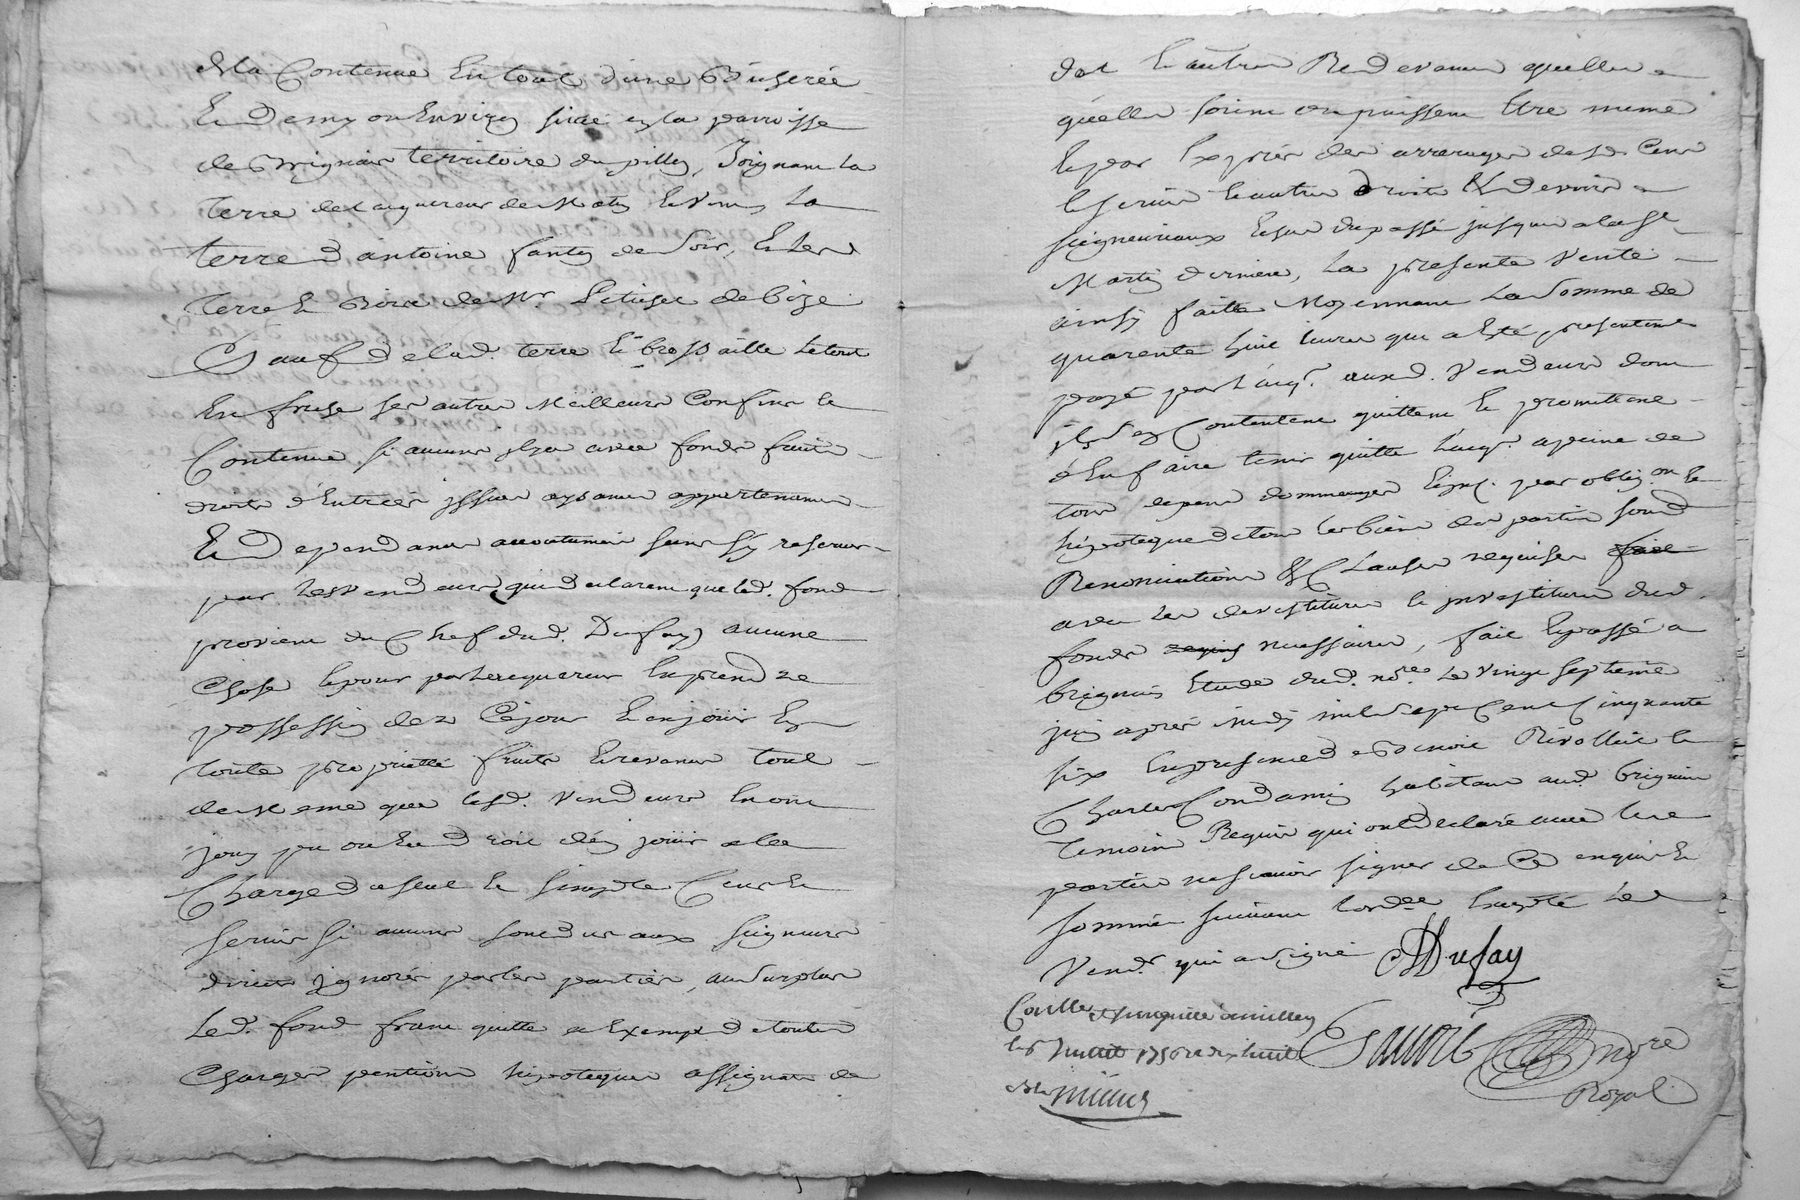 de la Contenue En tout d'une Bicherée
Et Demy ou Environ size en la parroisse
de Brignais territoire du pilley, Joignant la
terre de l'acquereur de Matin Et Vent, La
terre d'antoine fanty de Soir, Et Les
terre Et Bois de Mr de bize
Sauf de lad. terre Et brossaille Le tout
En friche ses autres Meilleurs Confins Et
Contenue si aucuns il y a avec fonds fruits
droits d'Entrées issues aysances appartenances
Et Dependances accoutumés sans s'y reserver
par Les Vendeurs qui declarent que led. fond
provient du Chef dud. Dufay aucune
Chose Et pour par Lacquereur En prendre
possession dez Cejour Et en jouir En
toute proprietté fruits Et revenus tout
de Meme que lesd. Vendeurs En ont
jouy pu ou Eu droit d'en jouir a la
Charge du seul Et simple Cens Et
servis si aucuns sont dus aux seigneurs
directs ignorés par les parties, au Surplus
Led. fond franc quitte et Exempt de toutes
Charges pentions hipoteques assignats de
dot Et autres Redevances quelles
qu'elles soient ou puissent Etre meme
Et par Exprés des arrerages desd. Cens
Et servis Et autres droits Et devoirs
seigneuriaux Echus du passé jusques a la St
Martin derniere, La presente Vente
ainsy faitte Moyennant La Somme de
quarente huit livres qui a Eté presentement
payé par L'acqr. auxd. Vendeurs dont
ils s'en Contentent quittent Et promettent
d'En faire tenir quitte L'acqr. a peine de
tous depens dommages Et par oblig.on Et
hipoteque de tous les biens des parties sous
Renonciations Et Clauses requises fait
avec les devestitures Et investitures dud.
fonds necessaires, fait Et passé a
brignais Etude dud. nore. Le vingt septieme
juin aprés midy mil sept Cent Cinquante
six En presence de Benoit Rivollier Et
Charles Condamin habitans aud. brignais
temoins Requis qui ont declaré avec les
parties ne scavoir signer de Ce enquis Et
sommés suivant l'ordce Excepté Led.
Vendr. qui a signé Dufay
le 6 Juillet 1756 dix huit
nore
Royal